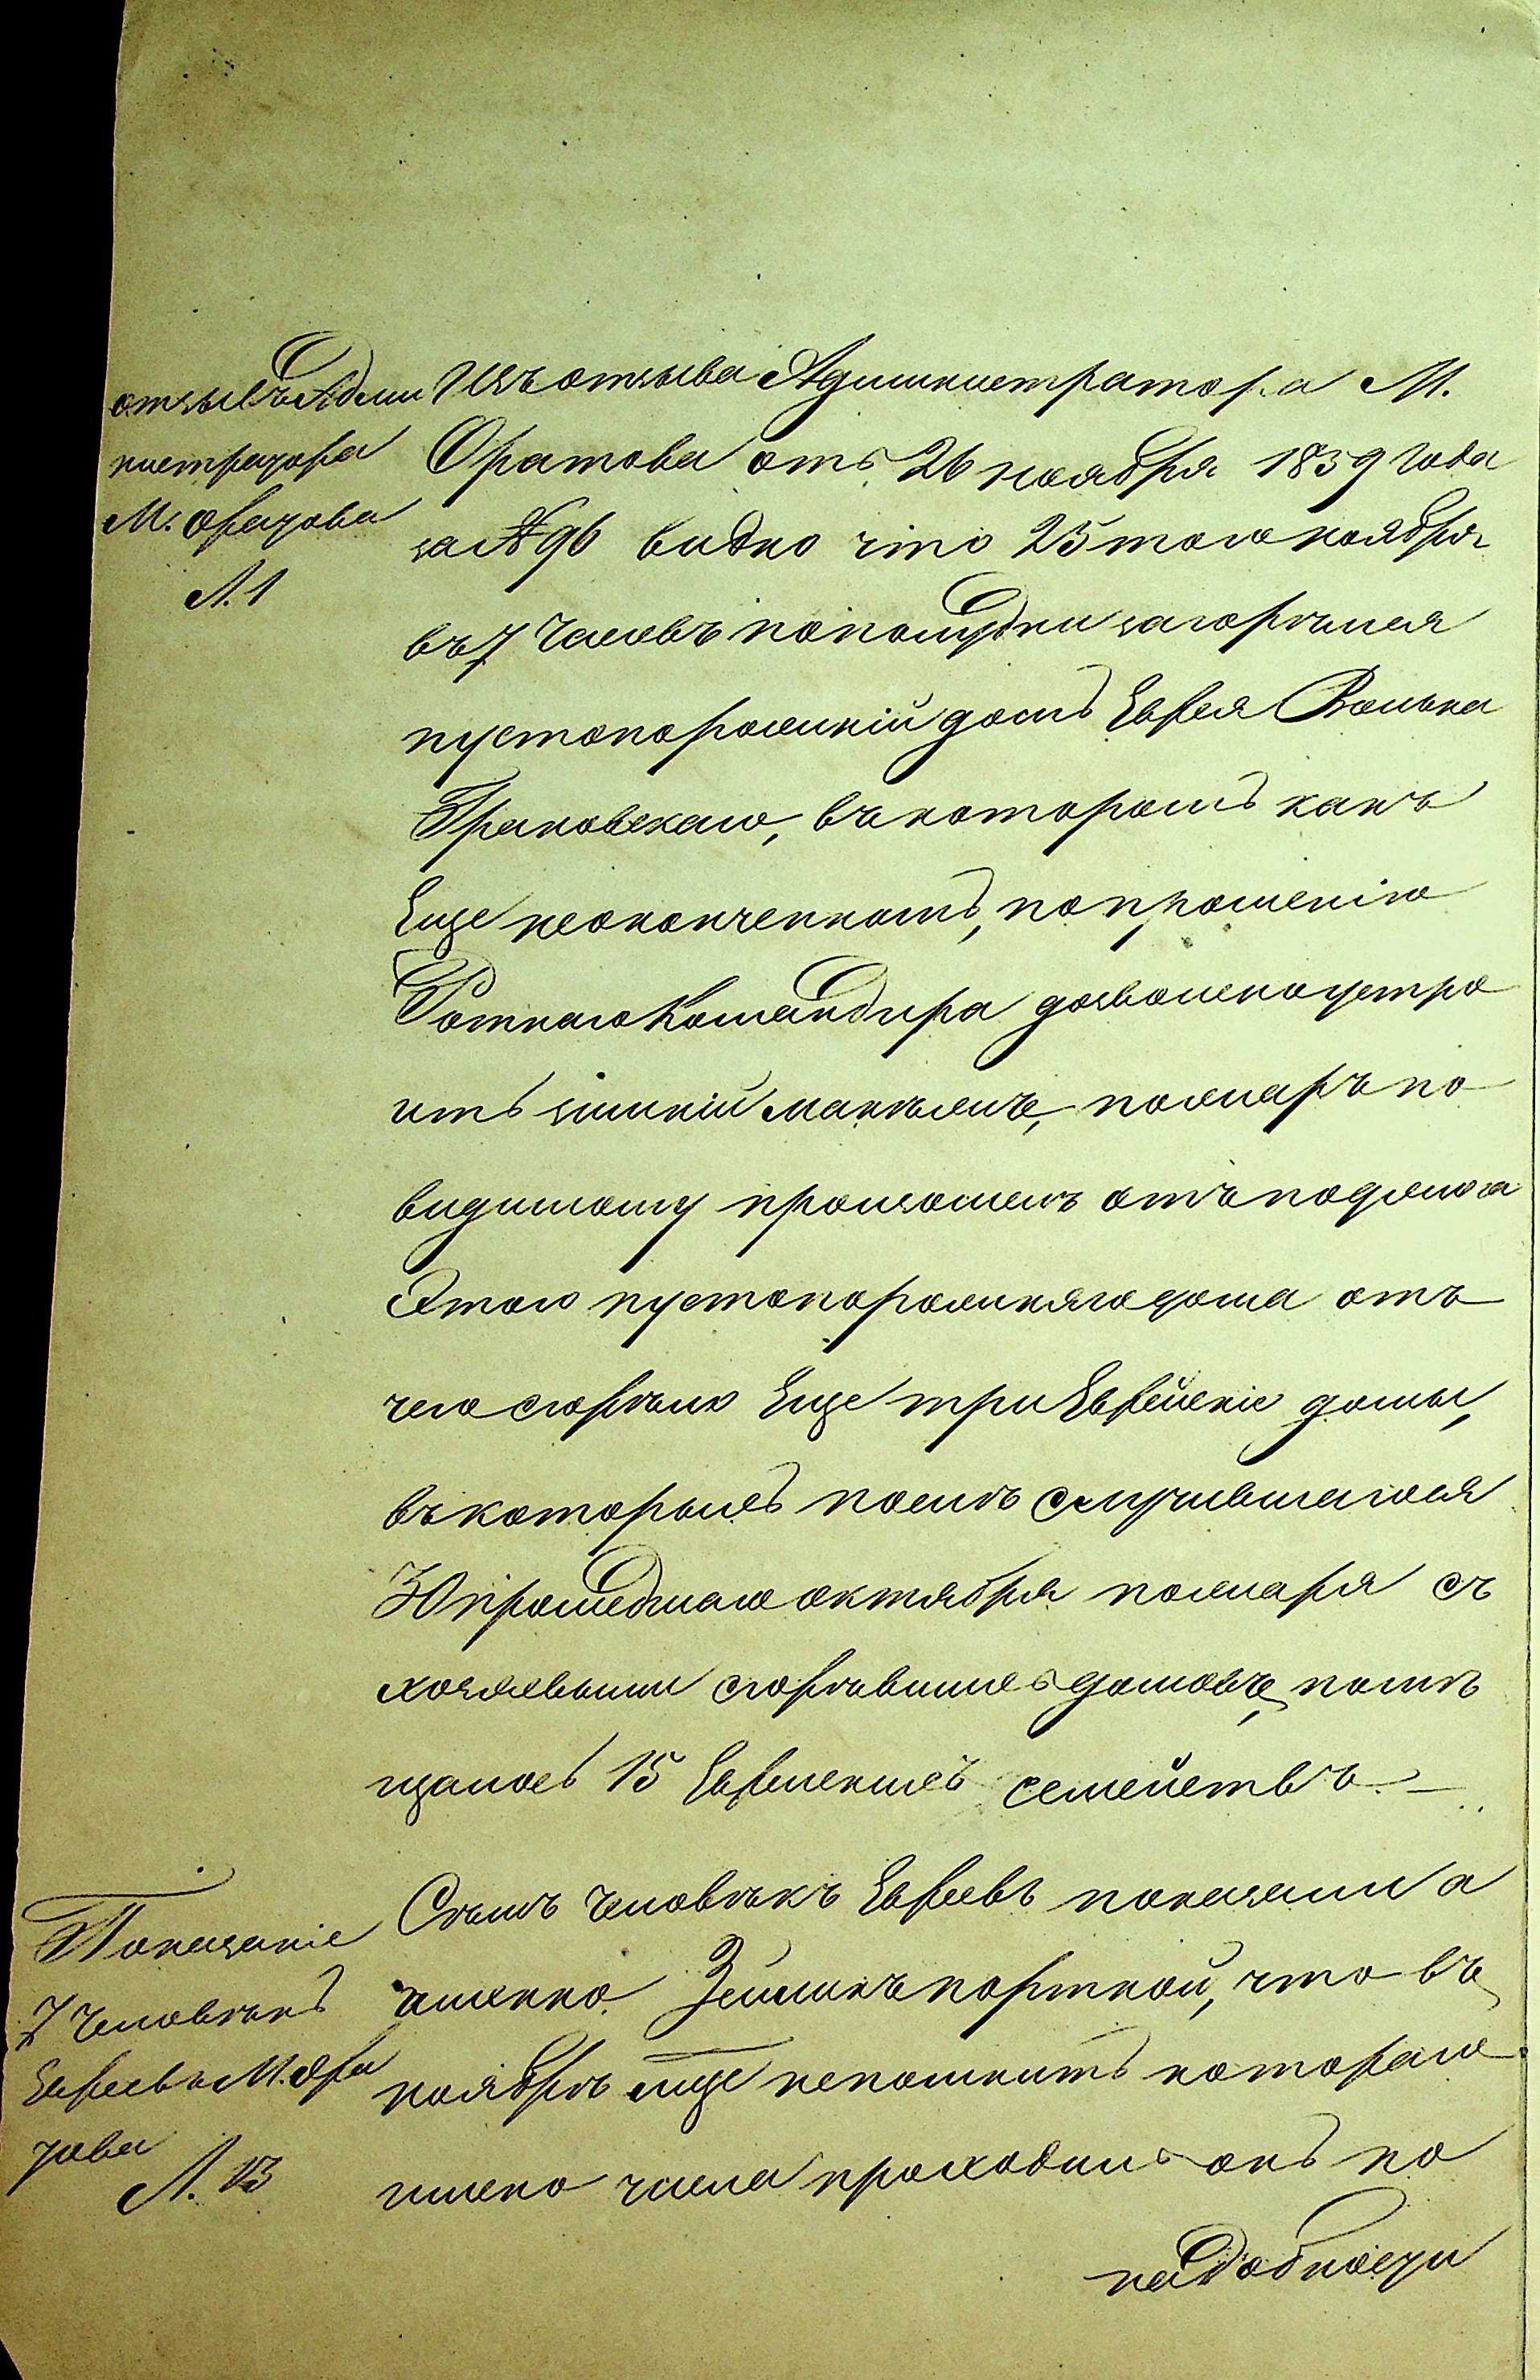 отзывъ Адми
нистратора
М. Оратова
Л. 1
Изъ отзыва Администратора М.
Оратова отъ 26 ноября 1839 года
за № 96 видно что 25 того ноября
въ 7 часовъ пополудни загорѣлся
пустопорожній домъ Еврея Волька
Грановскаго, въ которомъ какъ
Еще неоконченномъ, по прошенію
Ротнаго Командира дозволено устро
ить зимній манѣжъ, пожаръ по
видимому произошелъ отъ поджога
Этого пустопорожняго дома отъ
чего сгорѣло Еще три Еврейскіе домы,
въ которыхъ послѣ случившагося
30 прошедшаго октября пожара съ
хозяевыми сгорѣвшихъ домовъ, помѣ
щалось 15 Еврейскихъ семействъ. —
Показаніе
7 человѣкъ
Евреевъ М. Ора
това
Л. 13
Семь человѣкъ Евреевъ показали а
именно. Зейликъ портной, что въ
ноябрѣ мце непомнитъ котораго
имено числа проходилъ онъ по
надобности